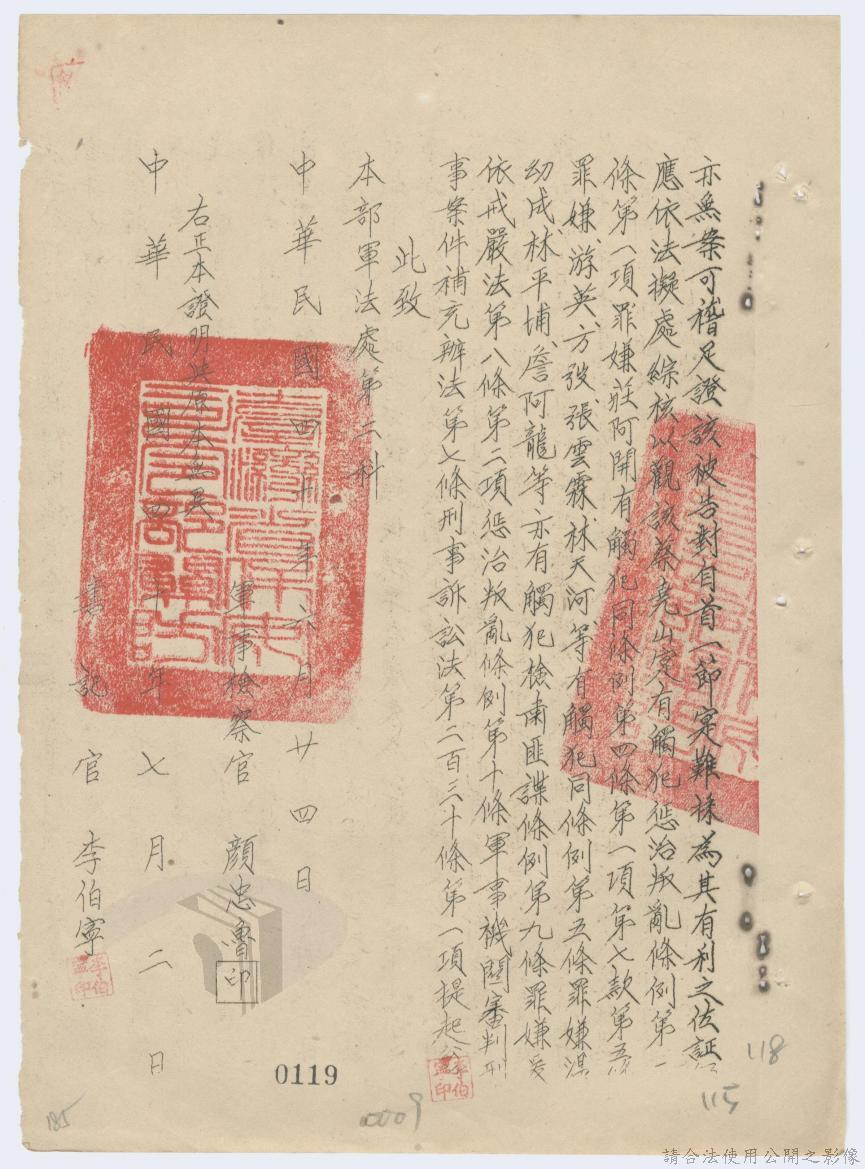 亦無案可稽足證該被告對自首一節寔難採為其有利之佐証
應依法擬處綜核以觀該蔡堯山寔有觸犯懲治叛亂條例第二
條第一項罪嫌莊阿開有觸犯同條例第四條第一項第七款第五條
罪嫌游英、方弢、張雲霖、林天河、等有觸犯同條例第五條罪嫌湛
幼成林平埔、詹阿龍等亦有觸犯檢肅匪諜條例第九條罪嫌爰
依戒嚴法第八條第二項懲治叛亂條例第十條軍事機關審判刑
事案件補充辦法第七條刑事訴訟法第二百三十條第一項提起公訴
此致
本部軍法處第二科
中華民國四十年六月廿四日
軍事檢察官 顏忠魯 印
右正本證明與原本無異
中華民國四十年七月二日
書記官 李伯寧
李伯寧印
李伯寧印
臺灣省保安司令部關防
0119
118
115
185
請合法使用公開之影像